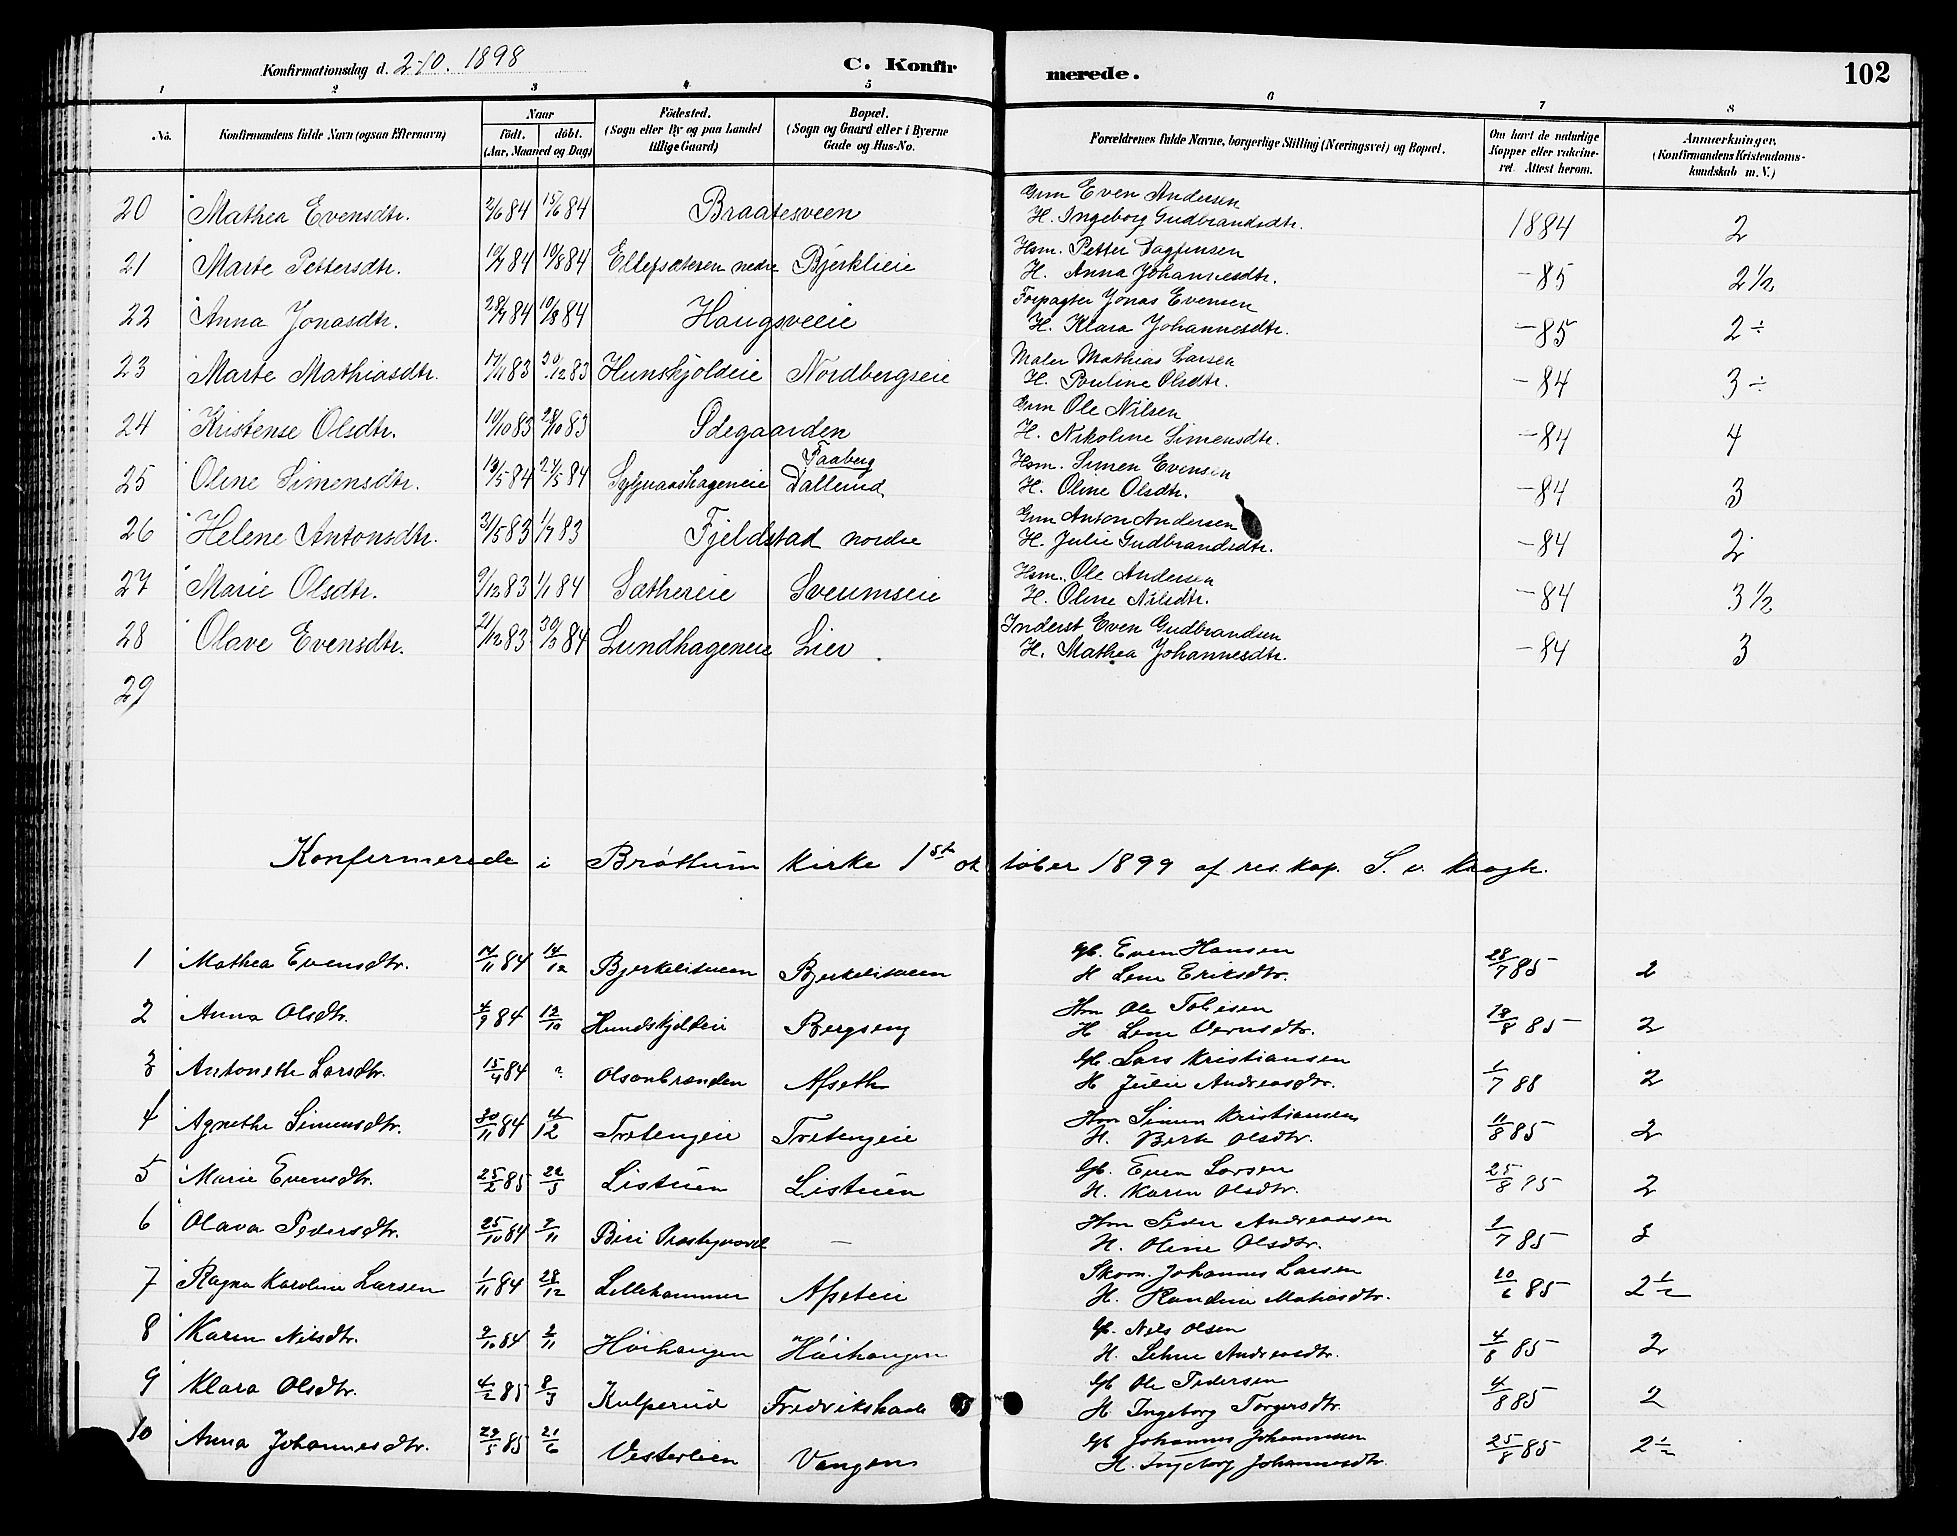 Konfirmationsdag d. 2-10. 1898
C. Konfir merede.
102
1 2 3 4 5 6 7 8
No.
Konfirmandens fulde Navn (ogsaa Efternavn)
Naar
födt. döbt.
(Aar, Maaned og Dag)
Födested.
(Sogn eller By og paa Landet
tillige Gaard)
Bopæl.
(Sogn og Gaard eller i Byerne
Gade og Hus-No.
Forældrenes fulde Navne, borgerlige Stilling (Næringsvei) og Bopæl.
Om havt de naturlige
Kopper eller vakcine-
ret. Attest herom.
Anmærkninger.
(Konfirmandens Kristendoms-
kundskab m.V.)
Gm Even Andersen
20 Mathea Evensdtr. 2/6 84 15/6 84 Braatesveen H. Ingeborg Gudbrandsdtr. 1884 2
Hsm. Petter Dagfinsen
21 Marte Pettersdtr. 10/7 84 10/8 84 Ellefsæteren nedre Bjerklieie H. Anna Johannesdtr. - 85 2 1/2
Forpagter Jonas Evensen
22 Anna Jonasdtr. 28/7 84 10/8 84 Haugsveeie H. Klara Johannesdtr. - 85 2 ÷
Maler Mathias Larsen
23 Marte Mathiasdtr. 17/11 83 30/12 83 Hunskjoldeie Nordbergseie H. Pauline Olsdtr. - 84 3 ÷
Gm Ole Nilsen
24 Kristense Olsdtr. 10/10 83 28/10 83 Ødegaarden H. Nikoline Simensdtr. - 84 4
Faaberg Hsm. Simen Evensen
25 Oline Simensdtr. 13/5 84 24/5 84 Dallerud H. Oline Olsdtr. - 84 3
Gm Anton Andersen
26 Helene Antonsdtr. 31/5 83 1/7 83 Fjeldstad nordre H. Julie Gudbrandsdtr. - 84 2
Hsm. Ole Andersen
27 Marie Olsdtr. 9/12 83 1/1 84 Sæthereie Sveumseie H. Oline Nilsdtr. - 84 3 1/2
Inderst Even Gudbrandsen
28 Olave Evensdtr. 21/12 83 30/3 84 Lundhageneie Lier H. Mathea Johannesdtr. - 84 3
29
Konfirmerede i Brøttum kirke 1ste oktober 1899 af res. kap. S. v. Krogh.
Gb. Even Hansen
1 Mathea Evensdtr. 14/11 84 14/12 Bjerkelisveen Bjerkelisveen H Lene Eriksdtr. 28/7 85 2
Hm Ole Tobiesen
2 Anna Olsdtr. 4/9 84 12/10 Hundskjoldeie Bergseng H Lene 18/8 85 2
Gb. Lars Kristiansen
3 Antonette Larsdtr. 15/4 84 ? Olsonbrænden Afseth H Julie Andreasdtr. 1/7 88 2
Hm Simen Kristiansen
4 Agnethe Simensdtr. 30/11 84 4/12 Tretengeie Tretengeie H. Berte Olsdtr. 11/8 85 2
Gb. Even Larsen
5 Marie Evensdtr. 25/2 85 22/3 Listuen Listuen H. Karen Olsdtr. 25/8 95 2
Hm Peder Andreassen
6 Olava Pedersdtr. 25/10 84 2/11 Biri Præstegaard - H. Oline Olsdtr. 1/7 85 3
Skom. Johannes Larsen
7 Ragna Karoline Larsen 1/11 84 28/12 Lillehammer Afseteie H. Randine Matiasdtr. 20/6 85 2 1/2
Gb. Nils Olsen
8 Karen Nilsdtr. 9/10 84 2/11 Høihaugen Høihaugen H. Lehne Andreasdtr. 4/8 85 2
Gb Ole Pedersen
9 Klara Olsdtr. 4/2 85 8/3 Kulperud Fredrikshade H Ingeborg Torgersdtr. 4/8 85 2
Gb Johannes Johannesen
10 Anna Johannesdtr. 29/5 85 21/6 Vesterleen Vangen H. Ingeborg Johannesdtr. 25/8 85 2 1/2